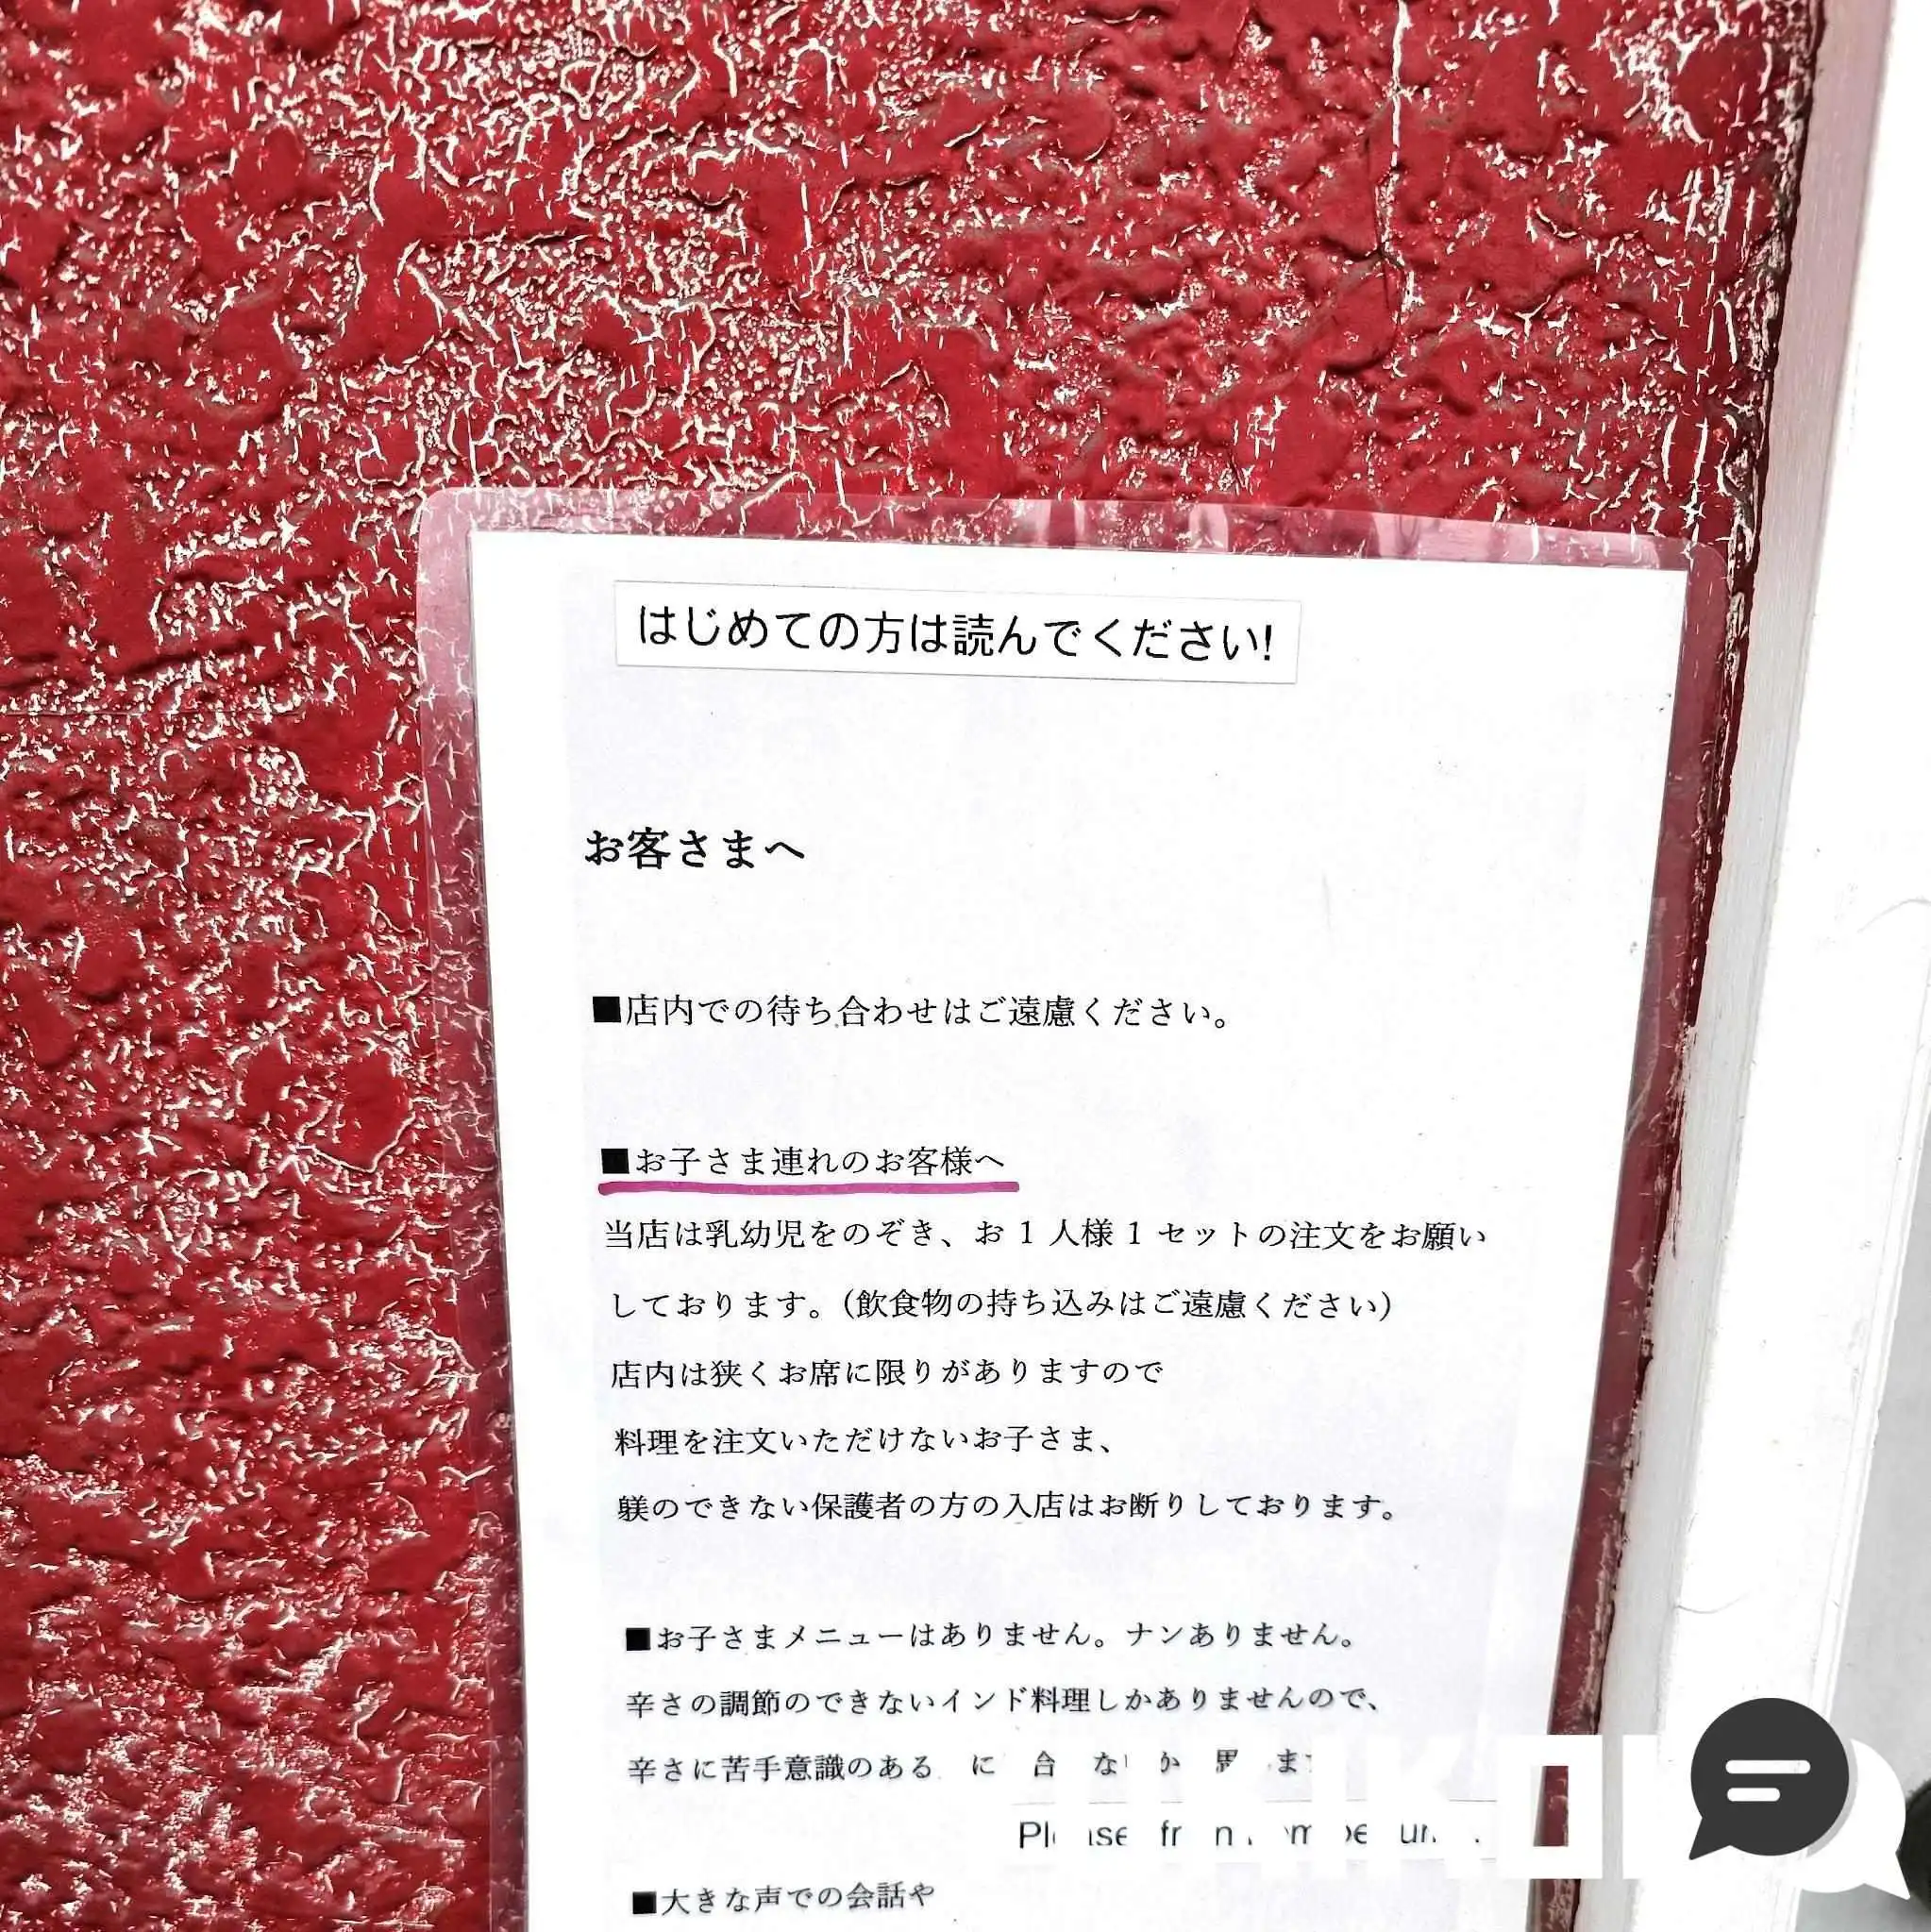 はじめての方は読んでください!
お客さまへ
■店内での待ち合わせはご遠慮ください。
■お子さま連れのお客様へ
当店は乳幼児をのぞき、お1人様1セットの注文をお願い
しております。(飲食物の持ち込みはご遠慮ください)
店内は狭くお席に限りがありますので
料理を注文いただけないお子さま、
躾のできない保護者の方の入店はお断りしております。
■お子さまメニューはありません。ナンありません。
辛さの調節のできないインド料理しかありませんので、
辛さに苦手意識のある
■大きな声での会話や